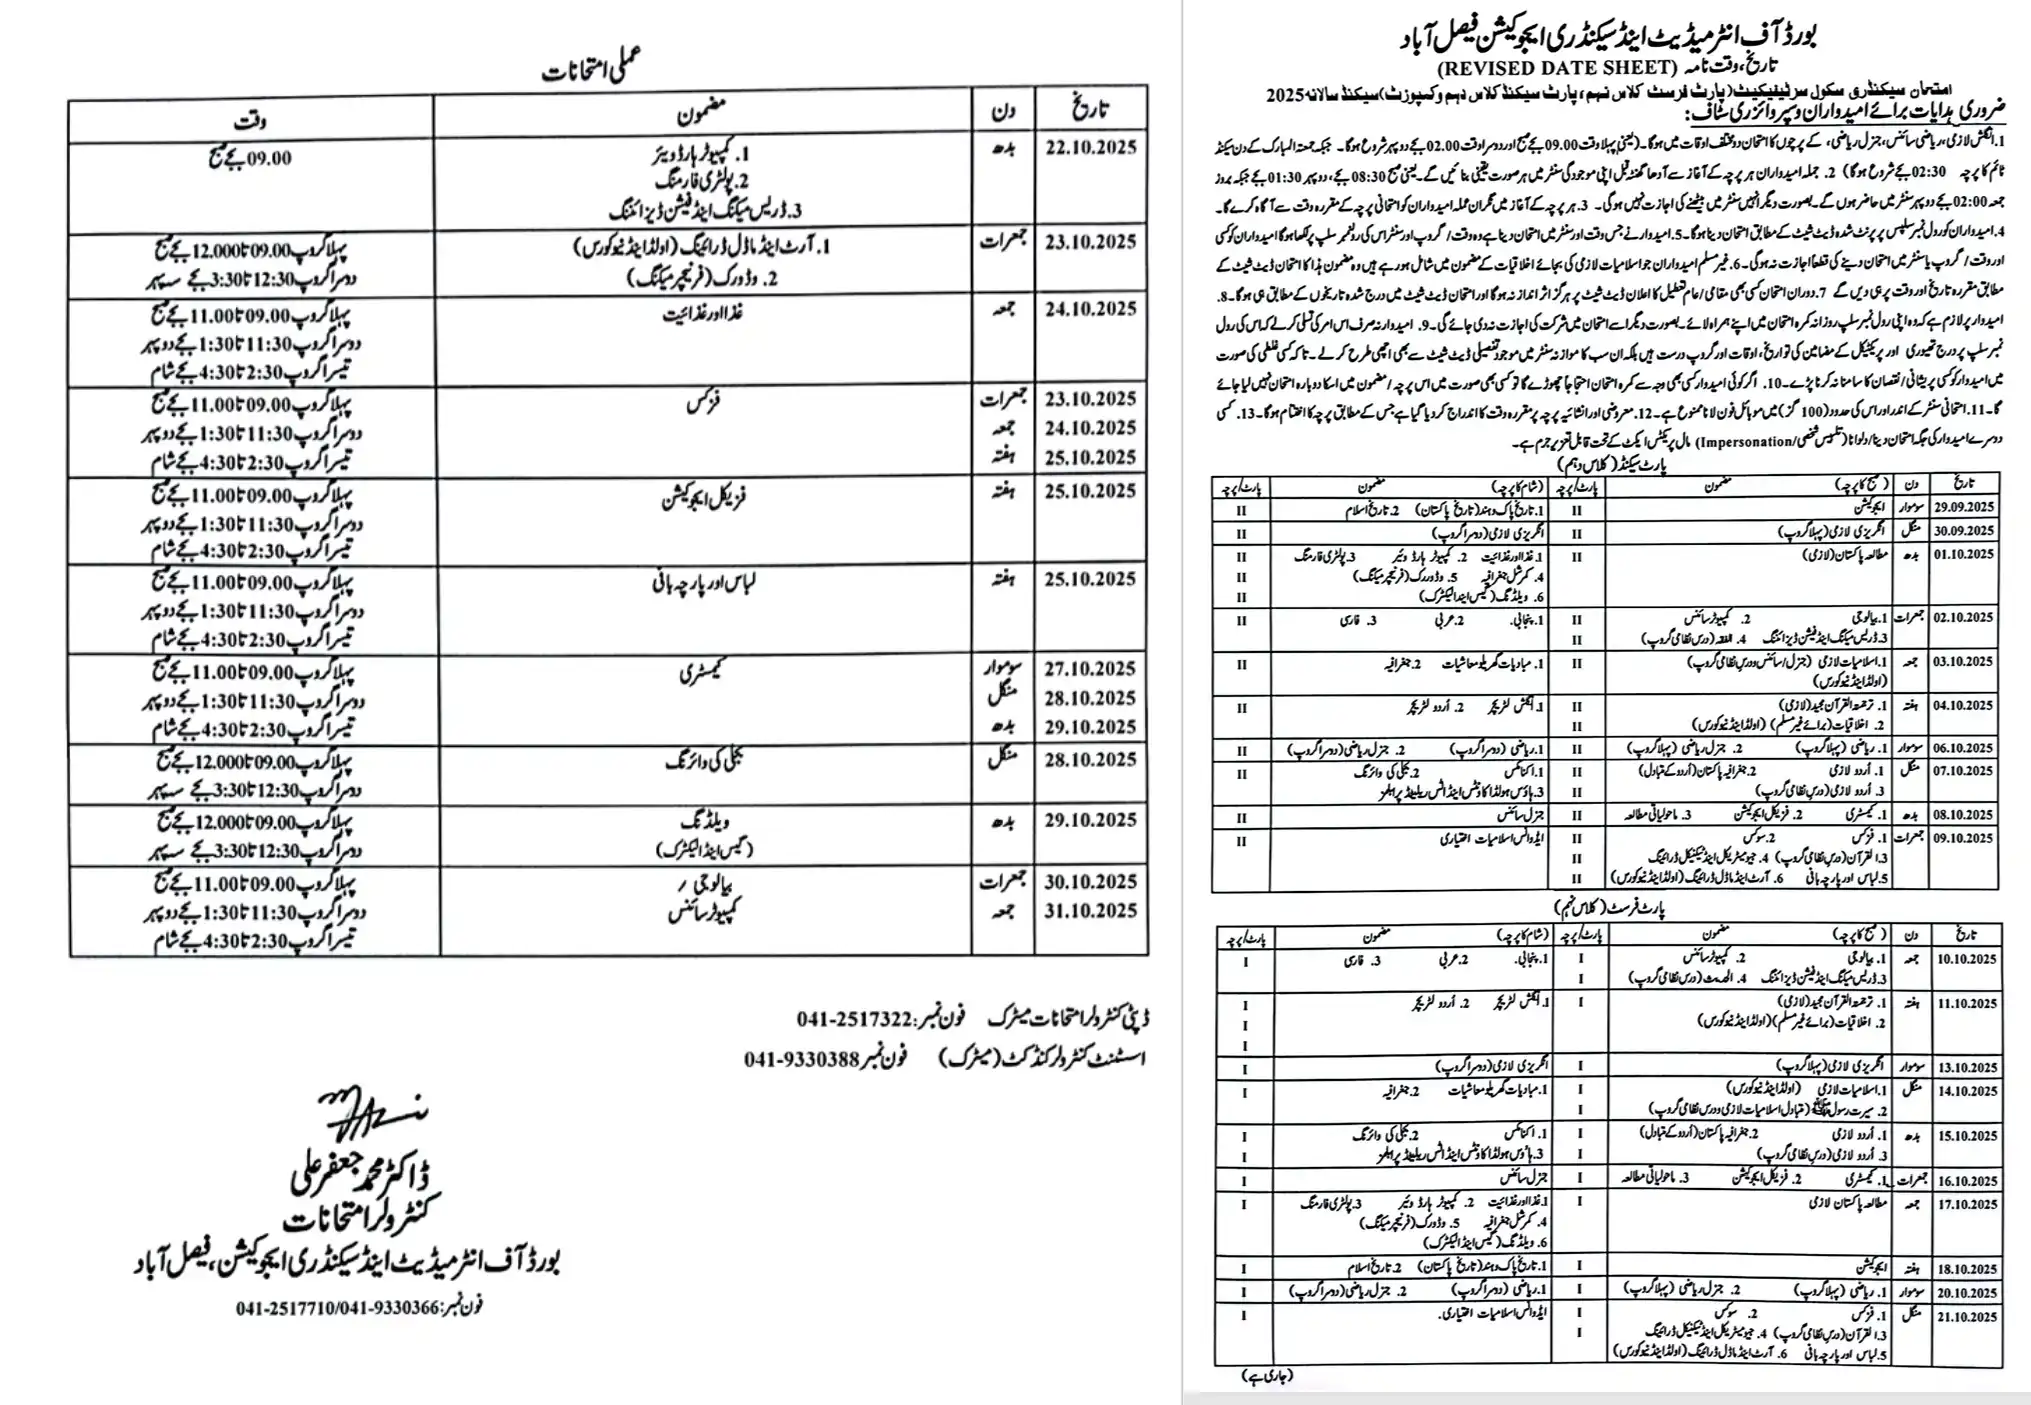 بورڈ آف انٹرمیڈیٹ اینڈ سیکنڈری ایجوکیشن فیصل آباد
تاریخ، وقت نامہ (REVISED DATE SHEET)
امتحان سیکنڈری سکول سرٹیفیکیٹ (پارٹ فرسٹ کلاس نہم، پارٹ سیکنڈ کلاس دہم و کمپوزٹ) سیکنڈ سالانہ 2025
ضروری ہدایات برائے امیدواران و سپروائزری سٹاف:
1۔ انگلش لازمی، ریاضی سائنس، جنرل ریاضی، کے پرچوں کا امتحان دو مختلف اوقات میں ہوگا۔ (یعنی پہلا وقت 09.00 بجے صبح اور دوسرا وقت 02.00 بجے دوپہر شروع ہوگا۔ جبکہ جمعتہ المبارک کے دن سیکنڈ
ٹائم کا پرچہ 02:30 بجے شروع ہوگا) 2۔ جملہ امیدواران ہر پرچہ کے آغاز سے آدھا گھنٹہ قبل اپنی موجودگی سنٹر میں ہر صورت یقینی بنائیں گے۔ یعنی صبح 08:30 بجے، دوپہر 01:30 بجے جبکہ بروز
جمعہ 02:00 بجے دوپہر سنٹر میں حاضر ہوں گے۔ بصورت دیگر انہیں سنٹر میں بیٹھنے کی اجازت نہیں ہوگی۔ 3۔ ہر پرچہ کے آغاز میں نگران عملہ امیدواران کو امتحانی پرچہ کے مقررہ وقت سے آگاہ کرے گا۔
4۔ امیدواران کو رول نمبر سلپس پر پرنٹ شدہ ڈیٹ شیٹ کے مطابق امتحان دینا ہوگا۔ 5۔ امیدوار نے جس وقت اور سنٹر میں امتحان دینا ہے وہ وقت/ گروپ اور سنٹر اس کی رولنمبر سلپ پر لکھا ہوگا امیدوار ان کو کسی
اور وقت/ گروپ یا سنٹر میں امتحان دینے کی قطعاً اجازت نہ ہوگی۔ 6۔ غیر مسلم امیدواران جو اسلامیات لازمی کی بجائے اخلاقیات کے مضمون میں شامل ہو رہے ہیں وہ مضمون ہذا کا امتحان ڈیٹ شیٹ کے
مطابق مقررہ تاریخ اور وقت پر ہی دیں گے 7۔ دوران امتحان کسی بھی مقامی/ عام تعطیل کا اعلان ڈیٹ شیٹ پر ہرگز اثر انداز نہ ہوگا اور امتحان ڈیٹ شیٹ میں درج شدہ تاریخوں کے مطابق ہی ہوگا۔ 8۔
امیدوار پر لازم ہے کہ وہ اپنی رول نمبر سلپ روزانہ کمرہ امتحان میں اپنے ہمراہ لائے۔ بصورت دیگر اسے امتحان میں شرکت کی اجازت نہ دی جائے گی۔ 9۔ امیدوار نہ صرف اس امر کی تسلی کر لے کہ اس کی رول
نمبر سلپ پر درج تھیوری اور پریکٹیکل کے مضامین کی تواریخ، اوقات اور گروپ درست ہیں بلکہ ان سب کا موازنہ سنٹر میں موجود تفصیلی ڈیٹ شیٹ سے بھی اچھی طرح کر لے۔ تاکہ کسی غلطی کی صورت
میں امیدوار کو کسی پریشانی/ نقصان کا سامنا نہ کرنا پڑے۔ 10۔ اگر کوئی امیدوار کسی بھی وجہ سے کمرہ امتحان احتجاجاً چھوڑے گا تو کسی بھی صورت میں اس پرچہ/ مضمون میں اسکا دوبارہ امتحان نہیں لیا جائے
گا۔ 11۔ امتحانی سنٹر کے اندر اور اس کی حدود (100 گز) میں موبائل فون لانا ممنوع ہے۔ 12۔ معروضی اور انشائیہ پرچہ پر مقررہ وقت کا اندراج کر دیا گیا ہے جس کے مطابق پرچہ کا اختتام ہوگا۔ 13۔ کسی
دوسرے امیدوار کی جگہ امتحان دینا/ دلوانا (تلبیس شخصی/Impersonation) مال پریکٹس ایکٹ کے تحت قابل تعزیر جرم ہے۔
پارٹ سیکنڈ (کلاس دہم)
تاریخ دن (صبح کا پرچہ) مضمون پارٹ/پرچہ (شام کا پرچہ) مضمون پارٹ/پرچہ
29.09.2025 سوموار ایجوکیشن II 1۔ تاریخ پاک و ہند (تاریخ پاکستان) 2۔ تاریخ اسلام II
30.09.2025 منگل انگریزی لازمی (پہلا گروپ) II انگریزی لازمی (دوسرا گروپ) II
01.10.2025 بدھ مطالعہ پاکستان (لازمی) II 1۔ غذا اور غذائیت 2۔ کمپیوٹر ہارڈ وئیر 3۔ پولٹری فارمنگ II
4۔ کمرشل جغرافیہ 5۔ وڈ ورک (فرنیچر میکنگ) II
6۔ ویلڈنگ (گیس اینڈ الیکٹرک) II
02.10.2025 جمعرات 1۔ بیالوجی 2۔ کمپیوٹر سائنس II 1۔ پنجابی۔ 2۔ عربی 3۔ فارسی II
3۔ ڈریس میکنگ اینڈ فیشن ڈیزائننگ 4۔ الفقہ (درس نظامی گروپ) II
03.10.2025 جمعہ 1۔ اسلامیات لازمی (جنرل/سائنس و درس نظامی گروپ) II 1۔ مبادیات گھریلو معاشیات 2۔ جغرافیہ II
(اولڈ اینڈ نیو کورس)
04.10.2025 ہفتہ 1۔ ترجمۃ القرآن مجید (لازمی) II 1۔ انگلش لٹریچر 2۔ اُردو لٹریچر II
2۔ اخلاقیات (برائے غیر مسلم) (اولڈ اینڈ نیو کورس) II
06.10.2025 سوموار 1۔ ریاضی (پہلا گروپ) 2۔ جنرل ریاضی (پہلا گروپ) II 1۔ ریاضی (دوسرا گروپ) 2۔ جنرل ریاضی (دوسرا گروپ) II
07.10.2025 منگل 1۔ اُردو لازمی 2۔ جغرافیہ پاکستان (اُردو کے متبادل) II 1۔ اکنامکس 2۔ بجلی کی وائرنگ II
3۔ اُردو لازمی (درس نظامی گروپ) II 3۔ ہاؤس ہولڈ اکاؤنٹس اینڈ اٹس ریلیٹڈ پرابلمز
08.10.2025 بدھ 1۔ کیمسٹری 2۔ فزیکل ایجوکیشن 3۔ ماحولیاتی مطالعہ II جنرل سائنس II
09.10.2025 جمعرات 1۔ فزکس 2۔ سوکس II ایڈوانس اسلامیات اختیاری II
3۔ القرآن (درس نظامی گروپ) 4۔ جیومیٹریکل اینڈ ٹیکنیکل ڈرائینگ II
5۔ لباس اور پارچہ بانی 6۔ آرٹ اینڈ ماڈل ڈرائینگ (اولڈ اینڈ نیو کورس) II
پارٹ فرسٹ (کلاس نہم)
تاریخ دن (صبح کا پرچہ) مضمون پارٹ/پرچہ (شام کا پرچہ) مضمون پارٹ/پرچہ
10.10.2025 جمعہ 1۔ بیالوجی 2۔ کمپیوٹر سائنس I 1۔ پنجابی۔ 2۔ عربی 3۔ فارسی I
3۔ ڈریس میکنگ اینڈ فیشن ڈیزائننگ 4۔ الحدیث (درس نظامی گروپ) I
11.10.2025 ہفتہ 1۔ ترجمۃ القرآن مجید (لازمی) I 1۔ انگلش لٹریچر 2۔ اُردو لٹریچر I
2۔ اخلاقیات (برائے غیر مسلم) (اولڈ اینڈ نیو کورس) I
I
13.10.2025 سوموار انگریزی لازمی (پہلا گروپ) I انگریزی لازمی (دوسرا گروپ) I
14.10.2025 منگل 1۔ اسلامیات لازمی (اولڈ اینڈ نیو کورس) I 1۔ مبادیات گھریلو معاشیات 2۔ جغرافیہ I
2۔ سیرت رسول ﷺ (متبادل اسلامیات لازمی و درس نظامی گروپ) I
15.10.2025 بدھ 1۔ اُردو لازمی 2۔ جغرافیہ پاکستان (اُردو کے متبادل) I 1۔ اکنامکس 2۔ بجلی کی وائرنگ I
3۔ اُردو لازمی (درس نظامی گروپ) I 3۔ ہاؤس ہولڈ اکاؤنٹس اینڈ اٹس ریلیٹڈ پرابلمز I
16.10.2025 جمعرات 1۔ کیمسٹری 2۔ فزیکل ایجوکیشن 3۔ ماحولیاتی مطالعہ I جنرل سائنس I
17.10.2025 جمعہ مطالعہ پاکستان لازمی I 1۔ غذا اور غذائیت 2۔ کمپیوٹر ہارڈ وئیر 3۔ پولٹری فارمنگ I
4۔ کمرشل جغرافیہ 5۔ وڈ ورک (فرنیچر میکنگ)
6۔ ویلڈنگ (گیس اینڈ الیکٹرک)
18.10.2025 ہفتہ ایجوکیشن I 1۔ تاریخ پاک و ہند (تاریخ پاکستان) 2۔ تاریخ اسلام I
20.10.2025 سوموار 1۔ ریاضی (پہلا گروپ) 2۔ جنرل ریاضی (پہلا گروپ) I 1۔ ریاضی (دوسرا گروپ) 2۔ جنرل ریاضی (دوسرا گروپ) I
21.10.2025 منگل 1۔ فزکس 2۔ سوکس I ایڈوانس اسلامیات اختیاری۔ I
3۔ القرآن (درس نظامی گروپ) 4۔ جیومیٹریکل اینڈ ٹیکنیکل ڈرائینگ I
5۔ لباس اور پارچہ بانی 6۔ آرٹ اینڈ ماڈل ڈرائینگ (اولڈ اینڈ نیو کورس)
(جاری ہے)
عملی امتحانات
تاریخ دن مضمون وقت
22.10.2025 بدھ 1۔ کمپیوٹر ہارڈ ویئر 09.00 بجے صبح
2۔ پولٹری فارمنگ
3۔ ڈریس میکنگ اینڈ فیشن ڈیزائننگ
23.10.2025 جمعرات 1۔ آرٹ اینڈ ماڈل ڈرائینگ (اولڈ اینڈ نیو کورس) پہلا گروپ 09.00 تا 12.00 بجے صبح
2۔ وڈ ورک (فرنیچر میکنگ) دوسرا گروپ 12:30 تا 3:30 بجے سہ پہر
24.10.2025 جمعہ غذا اور غذائیت پہلا گروپ 09.00 تا 11.00 بجے صبح
دوسرا گروپ 11:30 تا 1:30 بجے دوپہر
تیسرا گروپ 2:30 تا 4:30 بجے شام
23.10.2025 جمعرات فزکس پہلا گروپ 09.00 تا 11.00 بجے صبح
24.10.2025 جمعہ دوسرا گروپ 11:30 تا 1:30 بجے دوپہر
25.10.2025 ہفتہ تیسرا گروپ 2:30 تا 4:30 بجے شام
25.10.2025 ہفتہ فزیکل ایجوکیشن پہلا گروپ 09.00 تا 11.00 بجے صبح
دوسرا گروپ 11:30 تا 1:30 بجے دوپہر
تیسرا گروپ 2:30 تا 4:30 بجے شام
25.10.2025 ہفتہ لباس اور پارچہ بانی پہلا گروپ 09.00 تا 11.00 بجے صبح
دوسرا گروپ 11:30 تا 1:30 بجے دوپہر
تیسرا گروپ 2:30 تا 4:30 بجے شام
27.10.2025 سوموار کیمسٹری پہلا گروپ 09.00 تا 11.00 بجے صبح
28.10.2025 منگل دوسرا گروپ 11:30 تا 1:30 بجے دوپہر
29.10.2025 بدھ تیسرا گروپ 2:30 تا 4:30 بجے شام
28.10.2025 منگل بجلی کی وائرنگ پہلا گروپ 09.00 تا 12.00 بجے صبح
دوسرا گروپ 12:30 تا 3:30 بجے سہ پہر
29.10.2025 بدھ ویلڈنگ پہلا گروپ 09.00 تا 12.00 بجے صبح
(گیس اینڈ الیکٹرک) دوسرا گروپ 12:30 تا 3:30 بجے سہ پہر
30.10.2025 جمعرات بیالوجی / پہلا گروپ 09.00 تا 11.00 بجے صبح
31.10.2025 جمعہ کمپیوٹر سائنس دوسرا گروپ 11:30 تا 1:30 بجے دوپہر
تیسرا گروپ 2:30 تا 4:30 بجے شام
ڈپٹی کنٹرولر امتحانات میٹرک فون نمبر: 041-2517322
اسسٹنٹ کنٹرولر کنڈکٹ (میٹرک) فون نمبر 041-9330388
ڈاکٹر محمد جعفر علی
کنٹرولر امتحانات
بورڈ آف انٹرمیڈیٹ اینڈ سیکنڈری ایجوکیشن، فیصل آباد
فون نمبر: 041-2517710/041-9330366